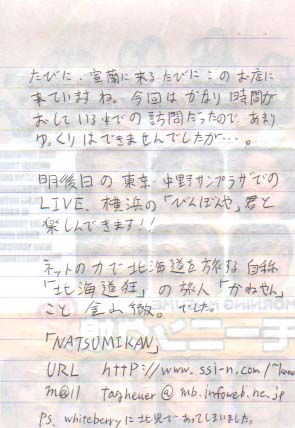 たびに、室蘭に来るたびにこのお店に
来ていますね。今回はかなり時間が
おしている中での訪問だったので、あまり
ゆっくりはできませんでしたが…。
明後日の東京・中野サンプラザでの
LIVE、横浜の「びんぼんや」君と
楽しんできます!!
ネットの力で北海道を旅な自称
「北海道狂」の旅人「かねせん」
こと 金山徹。でした。
「NATSUMIKAN」
URL http://www.ssi-n.com/~kana
m@il tagheuer@mb.infoweb.ne.jp
PS. whiteberryに北見であってしまいました。
モーニング